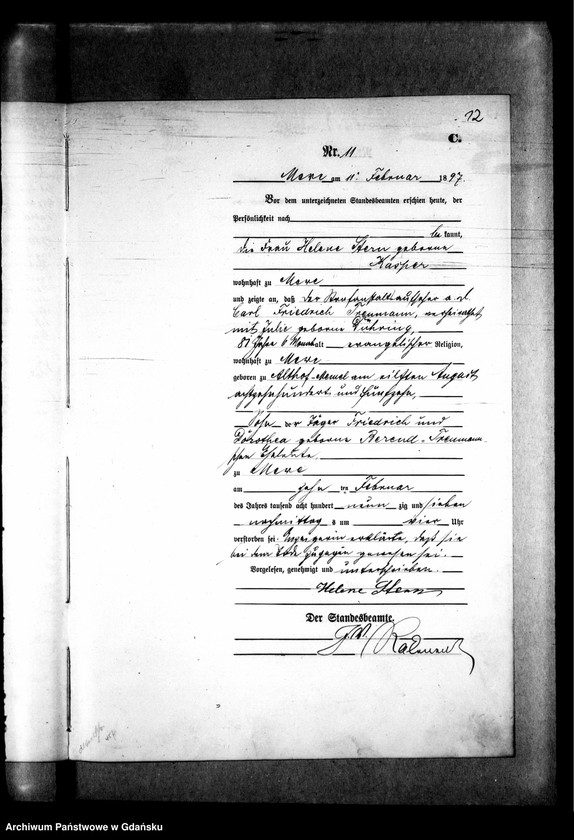 12
C.
Nr. 11
Mewe am 11. Februar 1897.
Vor dem unterzeichneten Standesbeamten erschien heute, der
Persönlichkeit nach
be kannt,
die Frau Helene Stern geborene
Kasper
wohnhaft zu Mewe
und zeigte an, daß der Strafanstaltsaufseher a. d.
Carl Friedrich Traumann, verheirathet
mit Julie geborene Dühring,
81 Jahre 6 Monat alt evangelischer Religion,
wohnhaft zu Mewe
geboren zu Althof-Memel am eilften August
achtzehnhundert und fünfzehn,
Sohn der Jäger Friedrich und
Dorothea geborene Traumann
schen Eheleute
zu Mewe
am zehn ten Februar
des Jahres tausend acht hundert neun zig und sieben
nachmittag s um vier Uhr
verstorben sei. Anzeigerin erklärte, daß sie
bei dem Tode zugegen gewesen sei.
Vorgelesen, genehmigt und unterschrieben.
Helene Stern
Der Standesbeamte.
Archiwum Państwowe w Gdańsku